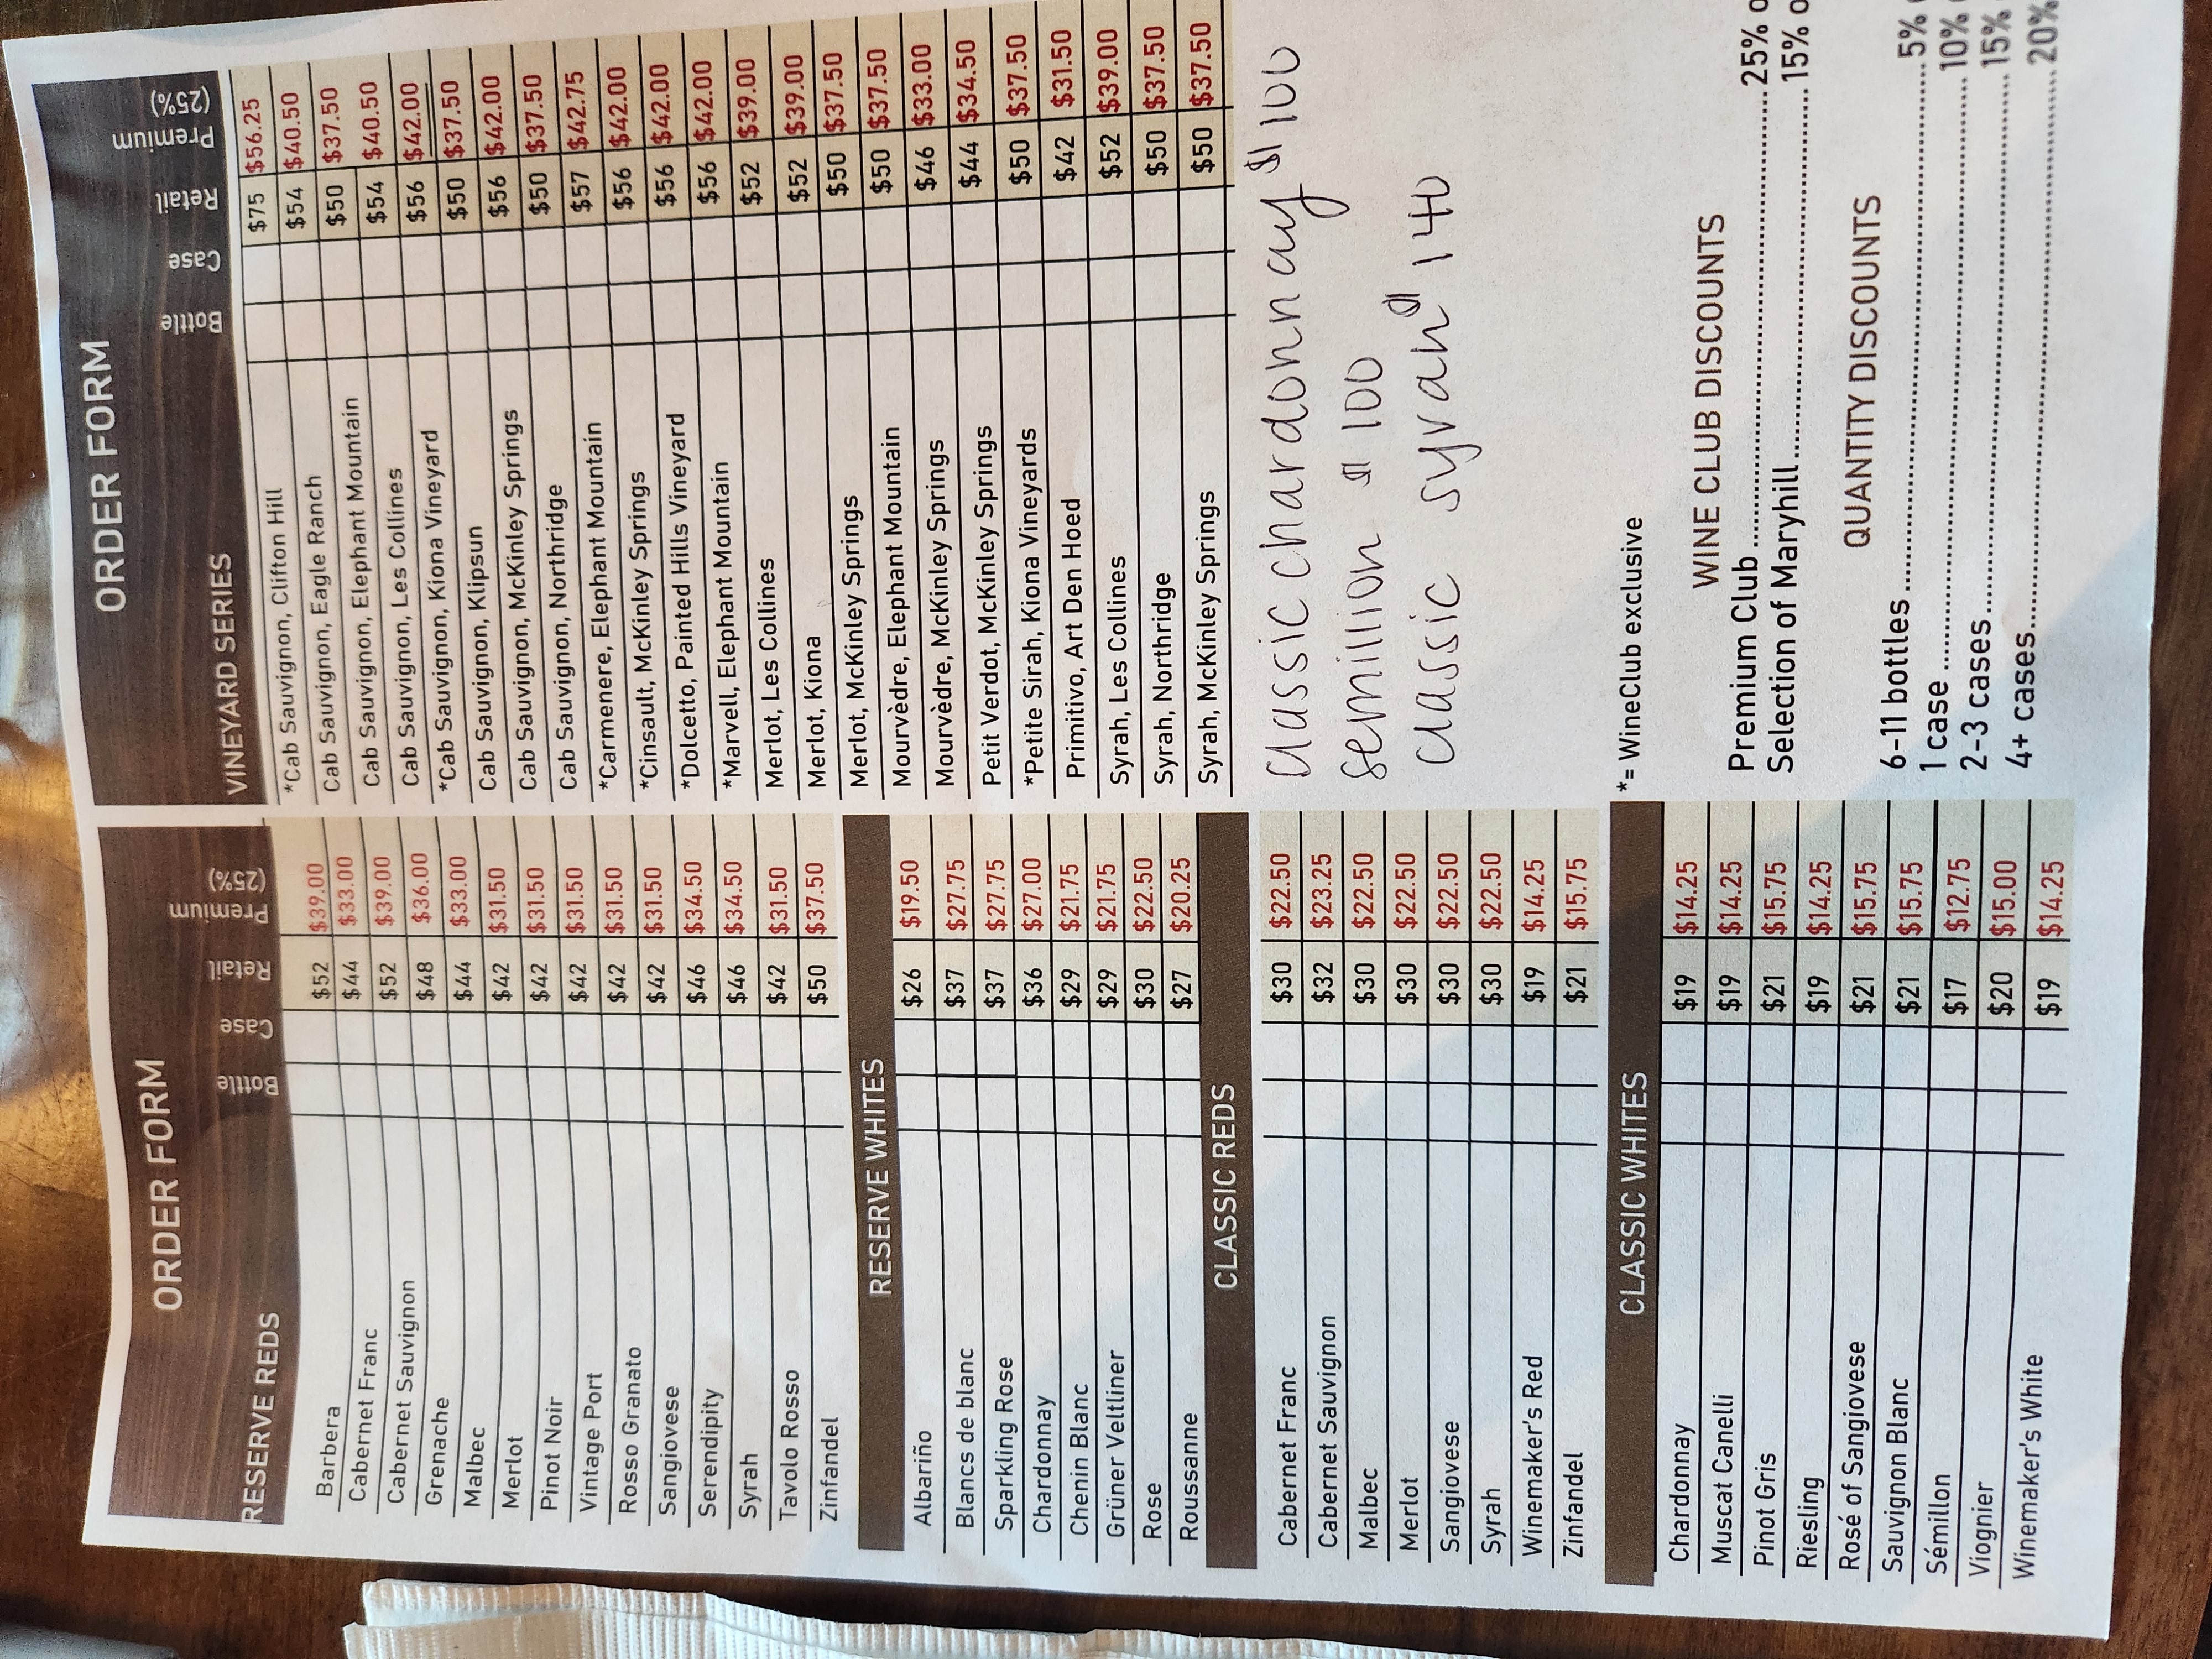 ORDER FORM
RESERVE REDS Bottle Case Retail Premium (25%)
Barbera $52 $39.00
Cabernet Franc $44 $33.00
Cabernet Sauvignon $52 $39.00
Grenache $48 $36.00
Malbec $44 $33.00
Merlot $42 $31.50
Pinot Noir $42 $31.50
Vintage Port $42 $31.50
Rosso Granato $42 $31.50
Sangiovese $42 $31.50
Serendipity $46 $34.50
Syrah $46 $34.50
Tavolo Rosso $42 $31.50
Zinfandel $50 $37.50
RESERVE WHITES
Albariño $26 $19.50
Blancs de blanc $37 $27.75
Sparkling Rose $37 $27.75
Chardonnay $36 $27.00
Chenin Blanc $29 $21.75
Grüner Veltliner $29 $21.75
Rose $30 $22.50
Roussanne $27 $20.25
CLASSIC REDS
Cabernet Franc $30 $22.50
Cabernet Sauvignon $32 $23.25
Malbec $30 $22.50
Merlot $30 $22.50
Sangiovese $30 $22.50
Syrah $30 $22.50
Winemaker's Red $19 $14.25
Zinfandel $21 $15.75
CLASSIC WHITES
Chardonnay $19 $14.25
Muscat Canelli $19 $14.25
Pinot Gris $21 $15.75
Riesling $19 $14.25
Rosé of Sangiovese $21 $15.75
Sauvignon Blanc $21 $15.75
Sémillon $17 $12.75
Viognier $20 $15.00
Winemaker's White $19 $14.25
ORDER FORM
VINEYARD SERIES Bottle Case Retail Premium (25%)
*Cab Sauvignon, Clifton Hill $75 $56.25
Cab Sauvignon, Eagle Ranch $54 $40.50
Cab Sauvignon, Elephant Mountain $50 $37.50
Cab Sauvignon, Les Collines $54 $40.50
*Cab Sauvignon, Kiona Vineyard $56 $42.00
Cab Sauvignon, Klipsun $50 $37.50
Cab Sauvignon, McKinley Springs $56 $42.00
Cab Sauvignon, Northridge $50 $37.50
*Carmenere, Elephant Mountain $57 $42.75
*Cinsault, McKinley Springs $56 $42.00
*Dolcetto, Painted Hills Vineyard $56 $42.00
*Marvell, Elephant Mountain $56 $42.00
Merlot, Les Collines $52 $39.00
Merlot, Kiona $52 $39.00
Merlot, McKinley Springs $50 $37.50
Mourvèdre, Elephant Mountain $50 $37.50
Mourvèdre, McKinley Springs $46 $33.00
Petit Verdot, McKinley Springs $44 $34.50
*Petite Sirah, Kiona Vineyards $50 $37.50
Primitivo, Art Den Hoed $42 $31.50
Syrah, Les Collines $52 $39.00
Syrah, Northridge $50 $37.50
Syrah, McKinley Springs $50 $37.50
classic chardonnay $100
semillion $100
classic syrah $140
*= WineClub exclusive
WINE CLUB DISCOUNTS
Premium Club 25% o
Selection of Maryhill 15% o
QUANTITY DISCOUNTS
6-11 bottles 5%
1 case 10%
2-3 cases 15%
4+ cases 20%